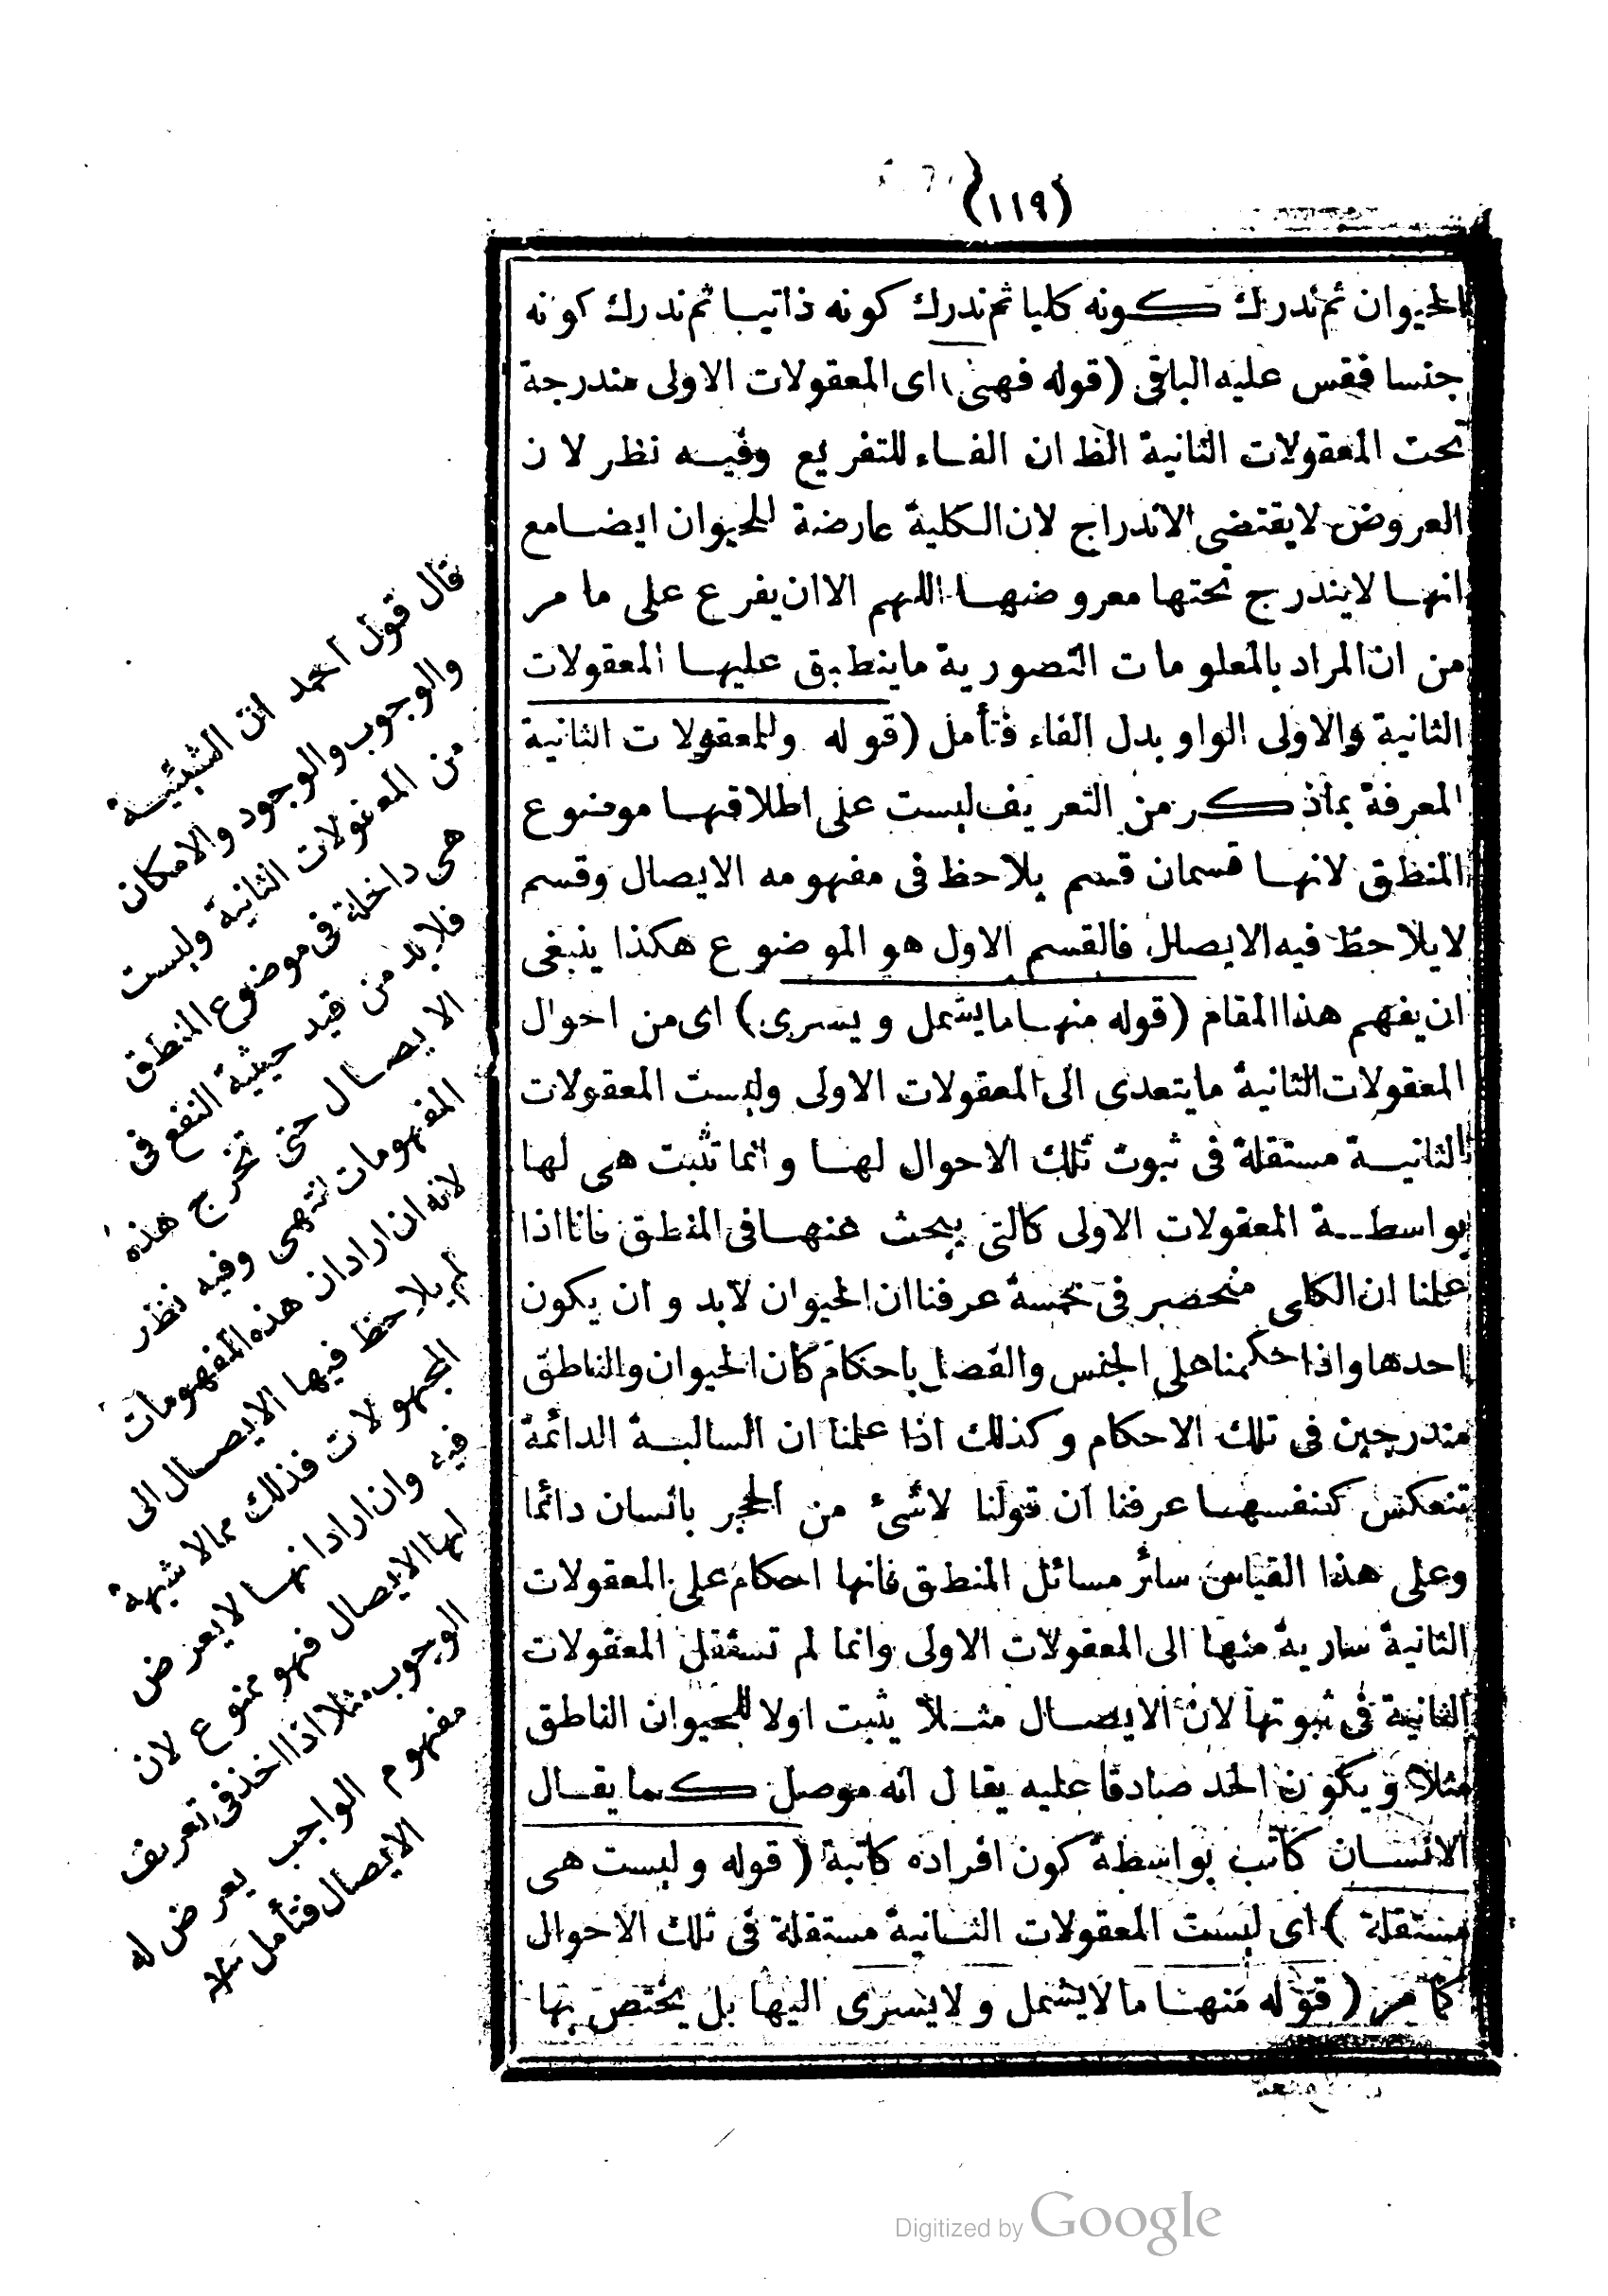 (١١٩)
الحيوان ثم ندرك كونه كليا ثم ندرك كونه ذاتيا ثم ندرك كونه
جنسا فقس عليه الباقى (قوله فهى) اى المعقولات الاولى مندرجة
تحت المعقولات الثانية الظ ان الفاء للتفريع وفيه نظر لان
العروض لايقتضى الاندراج لان الكلية عارضة للحيوان ايضا مع
انها لايندرج تحتها معروضها اللهم الا ان يفرع على ما مر
من ان المراد بالمعلومات التصورية ماينطبق عليها المعقولات
الثانية والاولى الواو بدل الفاء فتأمل (قوله وللمعقولات الثانية
المعرفة بماذكر من التعريف ليست على اطلاقها موضوع
المنطق لانها قسمان قسم يلاحظ فى مفهومه الايصال وقسم
لايلاحظ فيه الايصال فالقسم الاول هو الموضوع هكذا ينبغى
ان يفهم هذا المقام (قوله منها مايشمل ويسرى) اى من احوال
المعقولات الثانية مايتعدى الى المعقولات الاولى وليست المعقولات
الثانية مستقلة فى ثبوت تلك الاحوال لها وانما تثبت هى لها
بواسطة المعقولات الاولى كالتى يبحث عنها فى المنطق فانا اذا
علمنا ان الكلى منحصر فى خمسة عرفنا ان الحيوان لابد وان يكون
احدها واذا حكمنا على الجنس والفصل باحكام كان الحيوان والناطق
مندرجين فى تلك الاحكام وكذلك اذا علمنا ان السالبة الدائمة
تنعكس كنفسها عرفنا ان قولنا لاشئ من الحجر بانسان دائما
وعلى هذا القياس سائر مسائل المنطق فانها احكام على المعقولات
الثانية سارية منها الى المعقولات الاولى وانما لم تستقل المعقولات
الثانية فى ثبوتها لان الايصال مثلا يثبت اولا للحيوان الناطق
مثلا ويكون الحد صادقا عليه يقال انه موصل كما يقال
الانسان كاتب بواسطة كون افراده كاتبة (قوله وليست هى
مستقلة) اى ليست المعقولات الثانية مستقلة فى تلك الاحوال
كمامر (قوله منها ما لايشمل ولايسرى اليها بل يختص بها
قال قول احمد ان الشيئية
والوجوب والوجود والامكان
من المعقولات الثانية وليست
هى داخلة فى موضوع المنطق
فلابد من قيد حيثية النفع فى
الايصال حتى تخرج هذه
المفهومات انتهى وفيه نظر
لانه ان اراد ان هذه المفهومات
لم يلاحظ فيها الايصال الى
المجهولات فذلك مما لا شبهة
فيه وان اراد انها لايعرض
لها الايصال فهو ممنوع لان
الوجوب مثلا اذا اخذ فى تعريف
مفهوم الواجب يعرض له
الايصال فتأمل
Digitized by Google